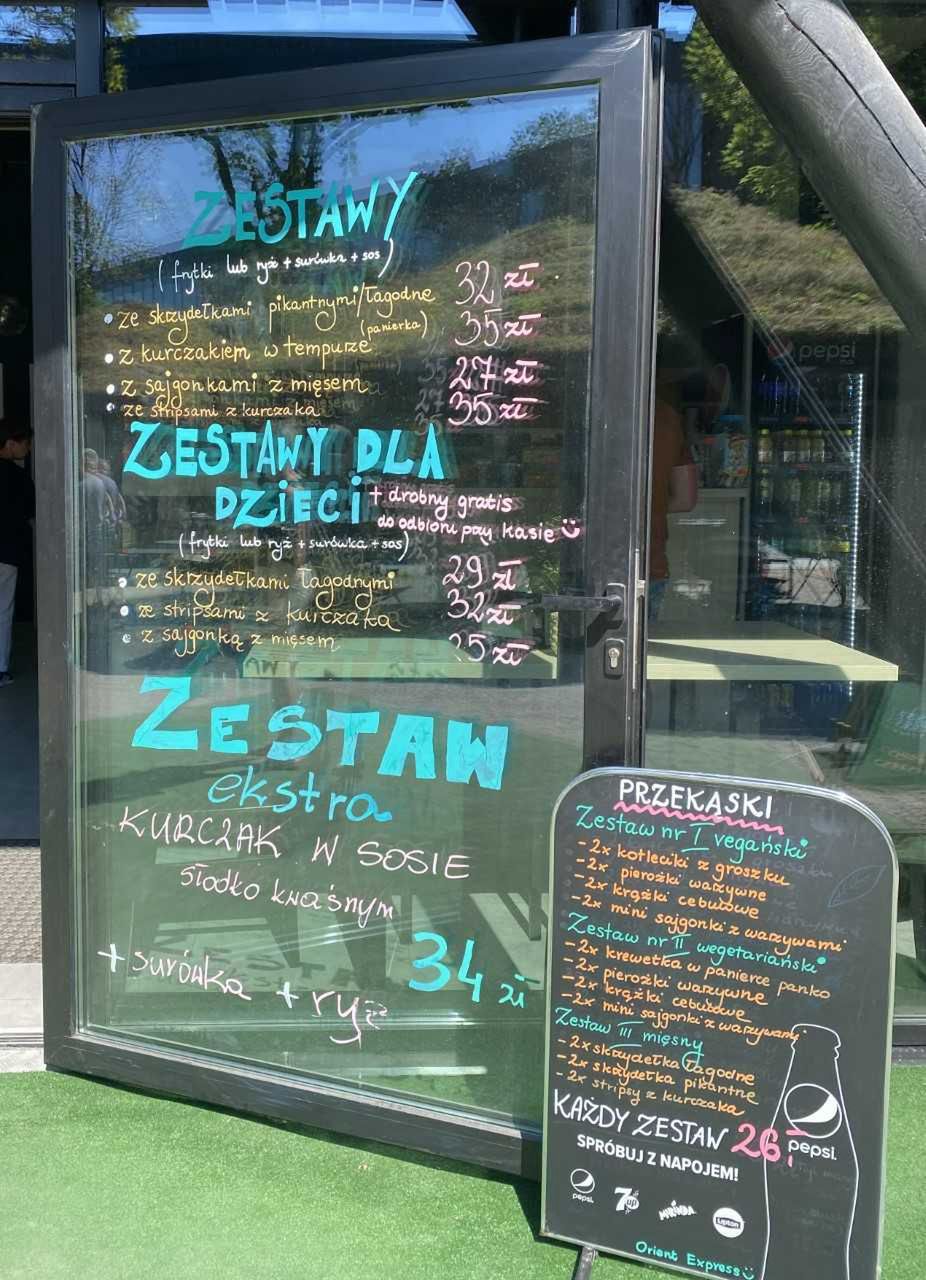 ZESTAWY
(frytki lub ryż + surówka + sos)
• ze skrzydełkami pikantnymi/łagodne 32 zł
(panierka)
• z kurczakiem w tempurze 35 zł
• z sajgonkami z mięsem 27 zł
• ze stripsami z kurczaka 35 zł
ZESTAWY DLA
DZIECI + drobny gratis
do odbioru pzy kasie
(frytki lub ryż + surówka + sos)
• ze skrzydełkami łagodnymi 29 zł
• ze stripsami z kurczaka 32 zł
• z sajgonką z mięsem 25 zł
ZESTAW
ekstra
KURCZAK W SOSIE
słodko kwaśnym
+ surówka + ryż 34 zł
pepsi
PRZEKĄSKI
Zestaw nr I vegański
- 2x kotleciki z groszku
- 2x pierożki warzywne
- 2x krążki cebulowe
- 2x mini sajgonki z warzywami
Zestaw nr II wegetariański
- 2x krewetka w panierce panko
- 2x pierożki warzywne
- 2x krążki cebulowe
- 2x mini sajgonki z warzywami
Zestaw III mięsny
- 2x skrzydełka łagodne
- 2x skrzydełka pikantne
- 2x stripsy z kurczaka
KAŻDY ZESTAW 26,-
pepsi.
SPRÓBUJ Z NAPOJEM!
pepsi. 7up MIRINDA Lipton
Orient Express